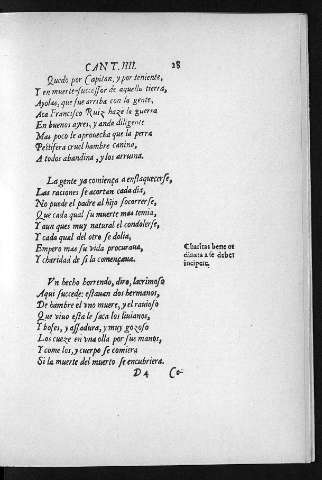 CANT. IIII. 28
Quedo por Capitan, y por teniente,
Y en muerte successor de aquella tierra,
Ayolas, que fue arriba con la gente,
Aca Francisco Ruiz haze la guerra
En buenos ayres, y anda diligente
Mas poco le aprouecha que la perra
Pestifera cruel hambre canina,
A todos abandina, y los arruina.
La gente ya comiença a enflaquecerse,
Las raciones se acortan cada dia,
No puede el padre al hijo socorrerse,
Que cada qual su muerte mas temia,
Y aun que es muy natural el condolerse,
Y cada qual del otro se dolia,
Empero mas su vida procuraua,
Y charidad de si la començaua.
Charitas bene or
dinata a se debet
incipere.
Vn hecho horrendo, diro, lacrimoso
Aqui succede: estauan dos hermanos,
De hambre el vno muere, y el rauioso
Que viuo esta le saca los liuianos,
Y bofes, y assadura, y muy gozoso
Los cueze en vna olla por sus manos,
Y come los, y cuerpo se comiera
Si la muerte del muerto se encubriera.
D 4 Co-